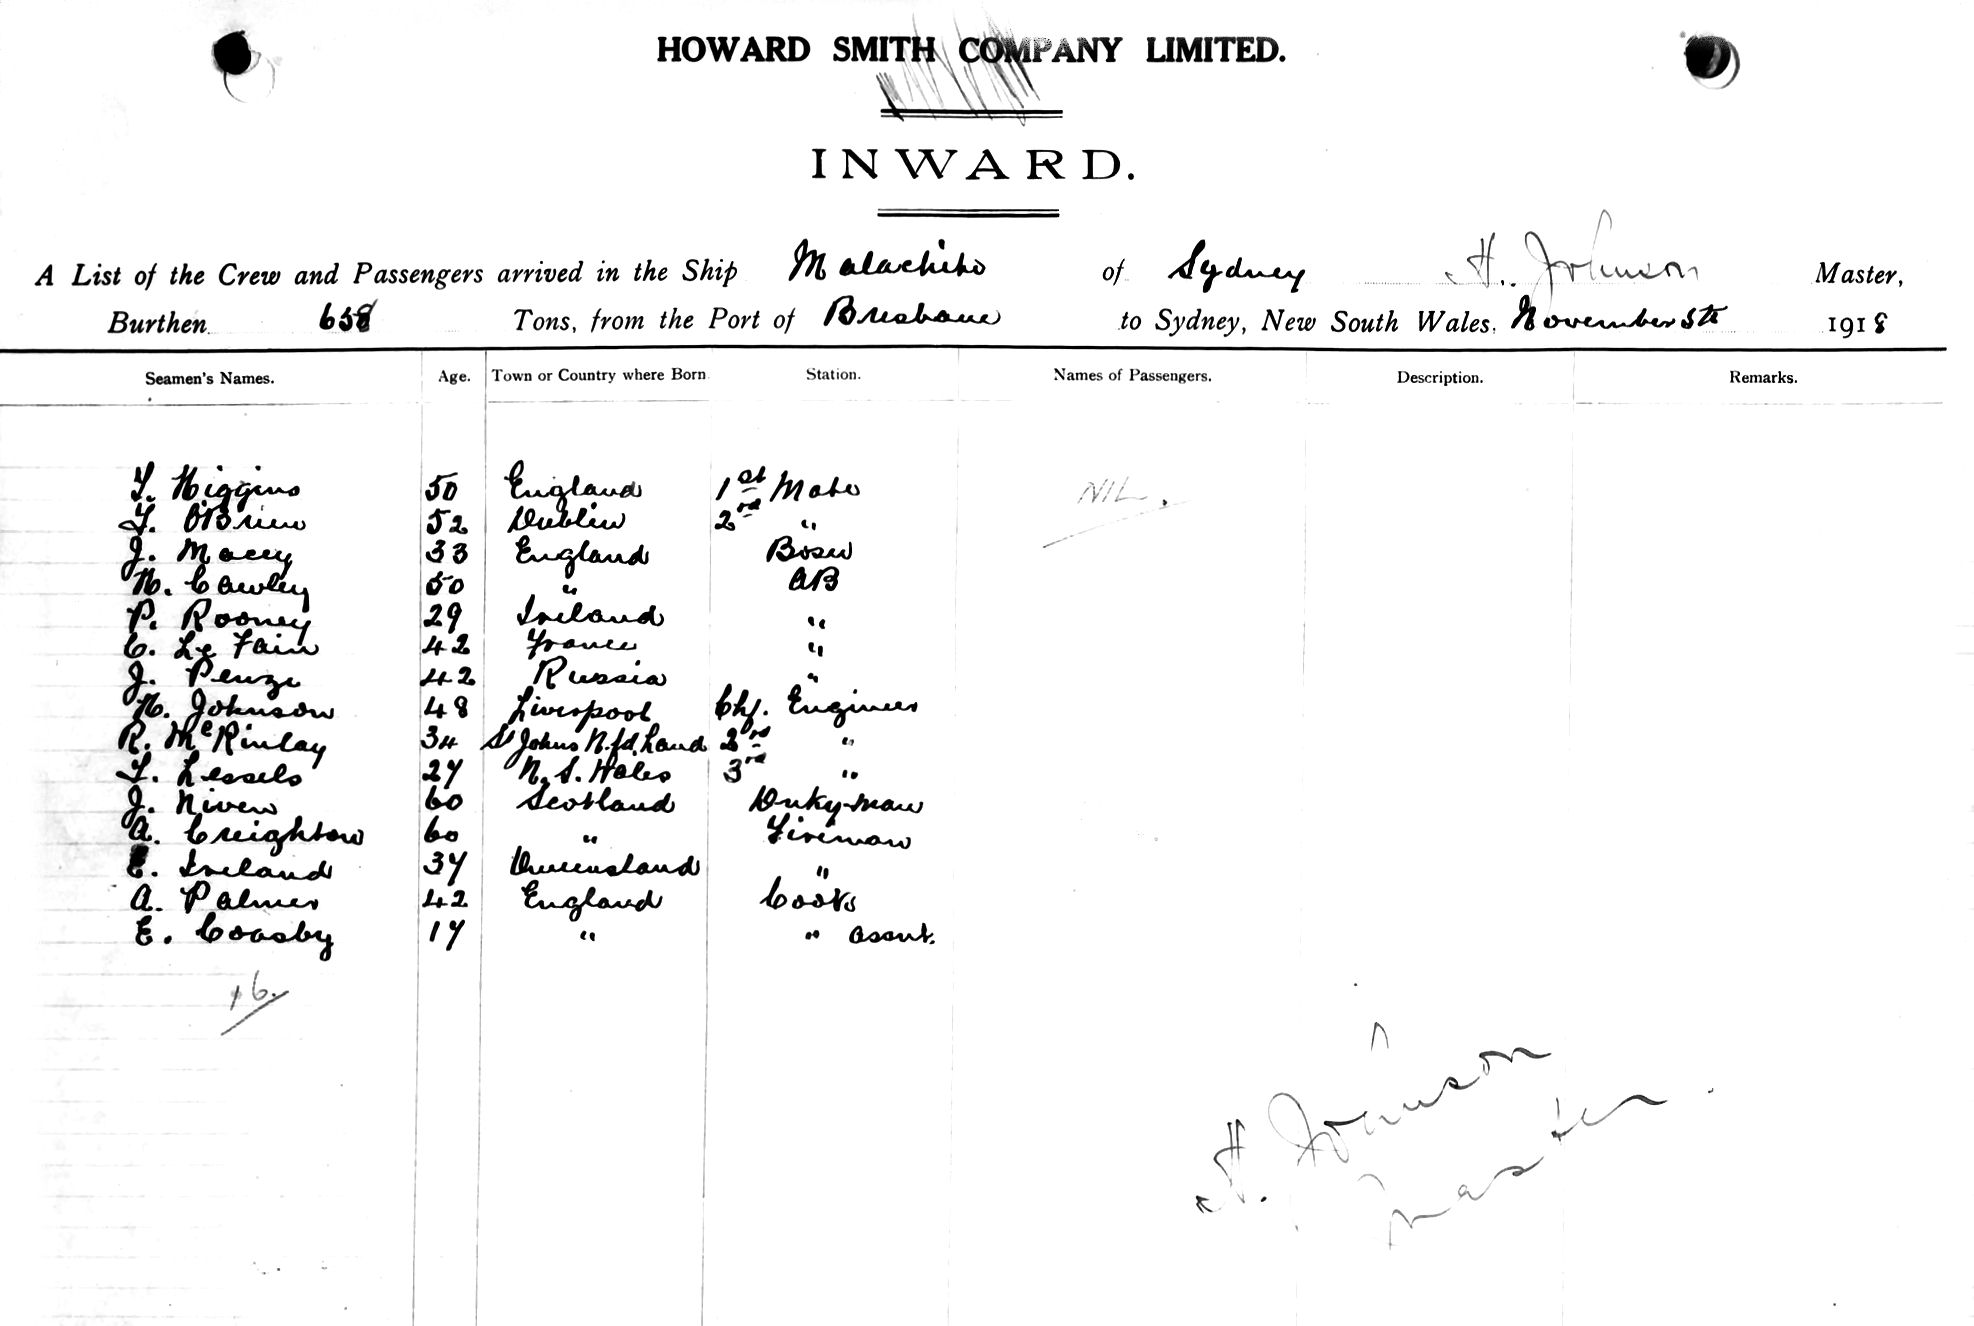 HOWARD SMITH COMPANY LIMITED.
INWARD.
A List of the Crew and Passengers arrived in the Ship Malachite of Sydney H. Johnson Master,
Burthen 658 Tons, from the Port of Brisbane to Sydney, New South Wales, November 5th 1918
Seamen's Names. Age. Town or Country where Born Station. Names of Passengers. Description. Remarks.
T. Higgins 50 England 1st Mate NIL.
T. O'Brien 52 Dublin 2nd "
J. Macey 33 England Bosn
H. Cawley 50 " AB
P. Rooney 29 Ireland "
C. Le Fain 42 France "
J. Penze 42 Russia "
H. Johnson 48 Liverpool Chf. Engineer
R. McKinlay 34 St Johns N.fd.Land 2nd "
T. Lessels 27 N. S. Wales 3rd "
J. Niven 60 Scotland Dnky-man
A. Creighton 60 " Fireman
E. Ireland 37 Queensland "
A. Palmer 42 England Cook
E. Coasby 17 " " assnt.
16.
H. Johnson
Master